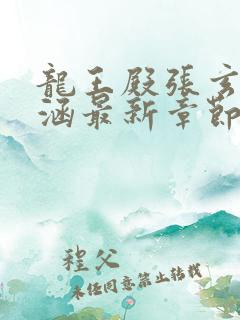 龍王殿張玄
涵最新章節
程父
未任同意禁止转载